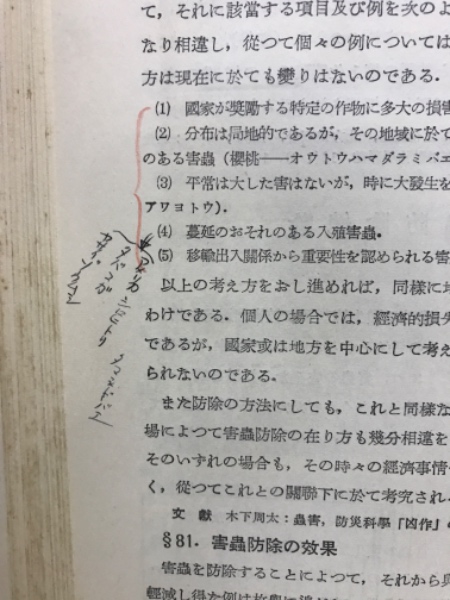 て，それに該當する項目及び例を次のよ
なり相違し，從つて個々の例については
方は現在に於ても變りはないのである．
(1) 國家が奬勵する特定の作物に多大の損害
(2) 分布は局地的であるが，その地域に於て
のある害蟲（櫻桃——オウトウハマダラミバエ
(3) 平常は大した害はないが，時に大發生を
アワヨトウ）．
(4) 蔓延のおそれのある入殖害蟲．
(5) 移輸出入關係から重要性を認められる害
以上の考え方をおし進めれば，同樣に地
わけである．個人の場合では，經濟的損失
であるが，國家或は地方を中心にして考え
られないのである．
また防除の方法にしても，これと同樣な
場によつて害蟲防除の在り方も幾分相違を
そのいずれの場合も，その時々の經濟事情
く，從つてこれとの關聯下に於て考究され
文 獻 木下周太：蟲害，防災科學「凶作」
§81．害蟲防除の効果
害蟲を防除することによつて，それから與
輕減し得た例は枚擧に